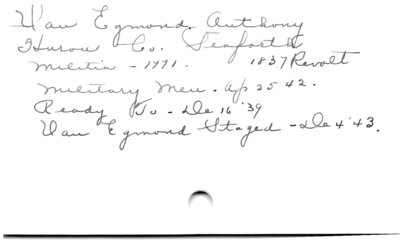 Van Egmond. Anthony
Huron Co. Seaforth
Militia - 1771. 1837 Revolt
Military Men. Ap 25 42.
Ready To - De 16 '39
Van Egmond Staged - De 4 '43.